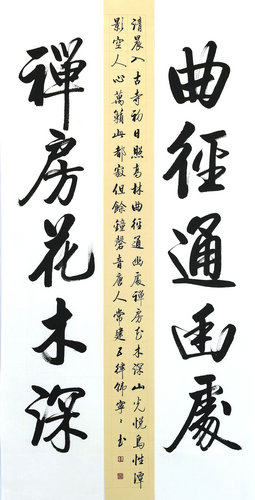 曲徑通幽處
清晨入古寺初日照高林曲徑通幽處禪房花木深山光悅鳥性潭
影空人心萬籟此都寂但餘鐘磬音唐人常建五律
禪房花木深